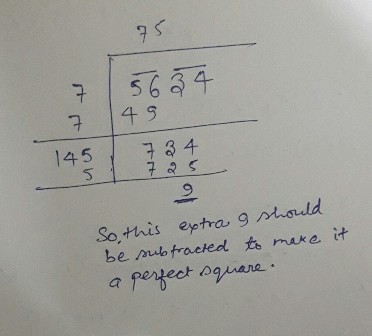 75
7 56 34
7 49
145 7 34
5 7 25
9
So, this extra 9 should
be subtracted to make it
a perfect square.